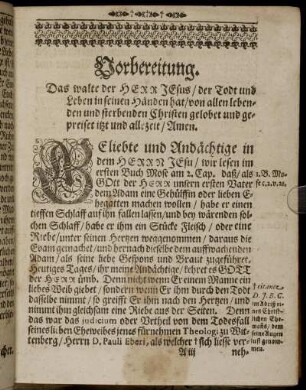 Vorbereitung.
Das walte der HERR JEsus/ der Todt und
Leben in seinen Händen hat/ von allen leben-
den und sterbenden Christen gelobet und ge-
preiset itzt und allezeit/ Amen.
GEliebte und Andächtige in
dem HERRN JEsu/ wir lesen im
ersten Buch Mose am 2. Cap. daß/ als
GOtt der HErr unsern ersten Vater
dem Adam eine Gehülffin oder lieben E-
hegatten machen wollen/ habe er einen
tieffen Schlaff auf ihn fallen lassen/ und bey wärenden sol-
chen Schlaff/ habe er ihm ein Stücke Fleisch/ oder eine
Riebe/ unter seinen Hertzen weggenommen/ daraus die
Evam gemachet/ und hernach dieselbe dem auffwachenden
Adam/ als seine liebe Gespons und Braut zugeführet.
Heutiges Tages/ ihr meine Andächtige/ kehret es GOTT
der HErr ümb. Denn nicht wenn Er einem Manne ein
liebes Weib giebet/ sondern wenn Er ihm durch den Todt
dasselbe nimmt/ so greifft Er ihm nach den Hertzen/ und
nimmt ihm gleichsam eine Riebe aus der Seiten. Denn
das war das judicium oder Urtheil von dem Todesfall
seines lieben Eheweibes jenes fürnehmen Theologi zu Wit-
tenberg/ Herrn D. Pauli Eberi, als welcher sich liesse ver-
A iij
neh-
1. B. Mo-